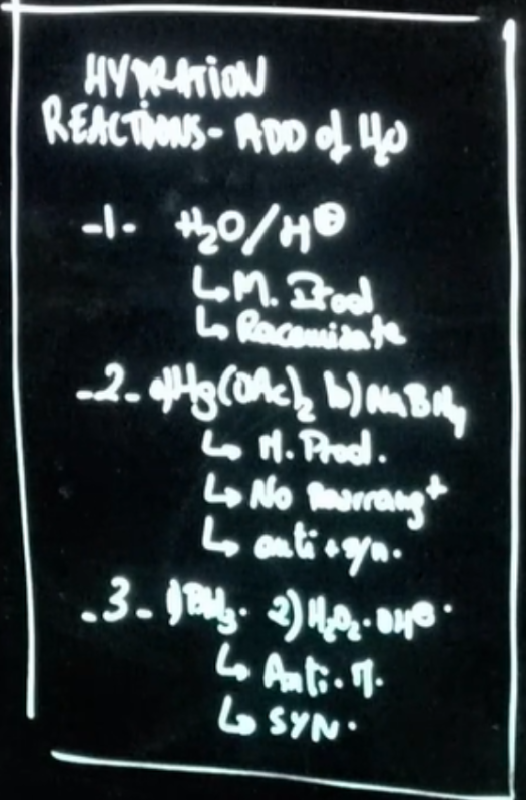 HYDRATION
REACTIONS - ADD of H₂O
-1- H₂O/H⊕
↳ M. Prod
↳ Racemizate
-2- a) Hg(OAc)₂ b) NaBH₄
↳ M. Prod.
↳ No rearrang⁺
↳ anti + syn.
-3- 1) BH₃. 2) H₂O₂. OH⊖.
↳ Anti. M.
↳ SYN.